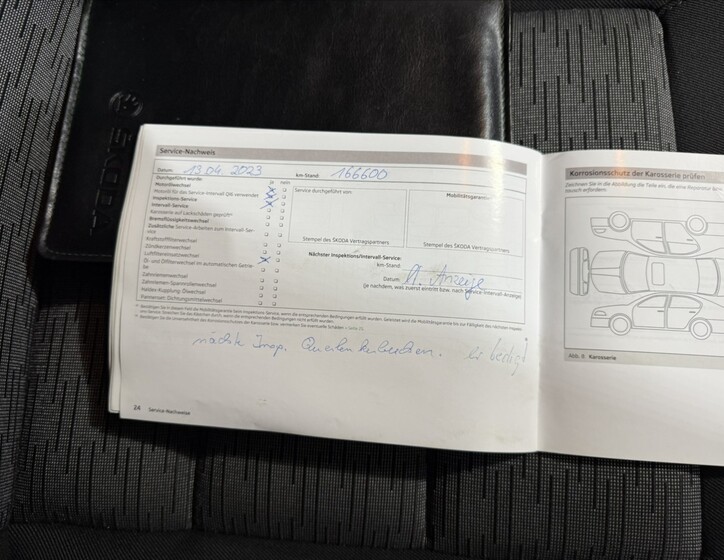 ŠKODA
Service-Nachweis
Datum: 13.04.2023 km-Stand: 166600
Durchgeführt wurde: ja nein
Motorölwechsel
Motoröl für das Service-Intervall QI6 verwendet
Inspektions-Service
Intervall-Service
Karosserie auf Lackschäden geprüft
Bremsflüssigkeitswechsel
Zusätzliche Service-Arbeiten zum Intervall-Ser-
vice
Kraftstofffilterwechsel
Zündkerzenwechsel
Luftfiltereinsatzwechsel
Öl- und Ölfilterwechsel im automatischen Getrie-
be
Zahnriemenwechsel
Zahnriemen-Spannrollenwechsel
Haldex-Kupplung: Ölwechsel
Service durchgeführt von:
Stempel des ŠKODA Vertragspartners
Mobilitätsgarantie
Stempel des ŠKODA Vertragspartners
Nächster Inspektions/Intervall-Service:
km-Stand:
Datum: Anzeige
(je nachdem, was zuerst eintritt bzw. nach Service-Intervall-Anzeige)
nächste Insp.
24 Service-Nachweise
Korrosionsschutz der Karosserie prüfen
Zeichnen Sie in die Abbildung die Teile ein, die eine Reparatur
Abb. 9 Karosserie